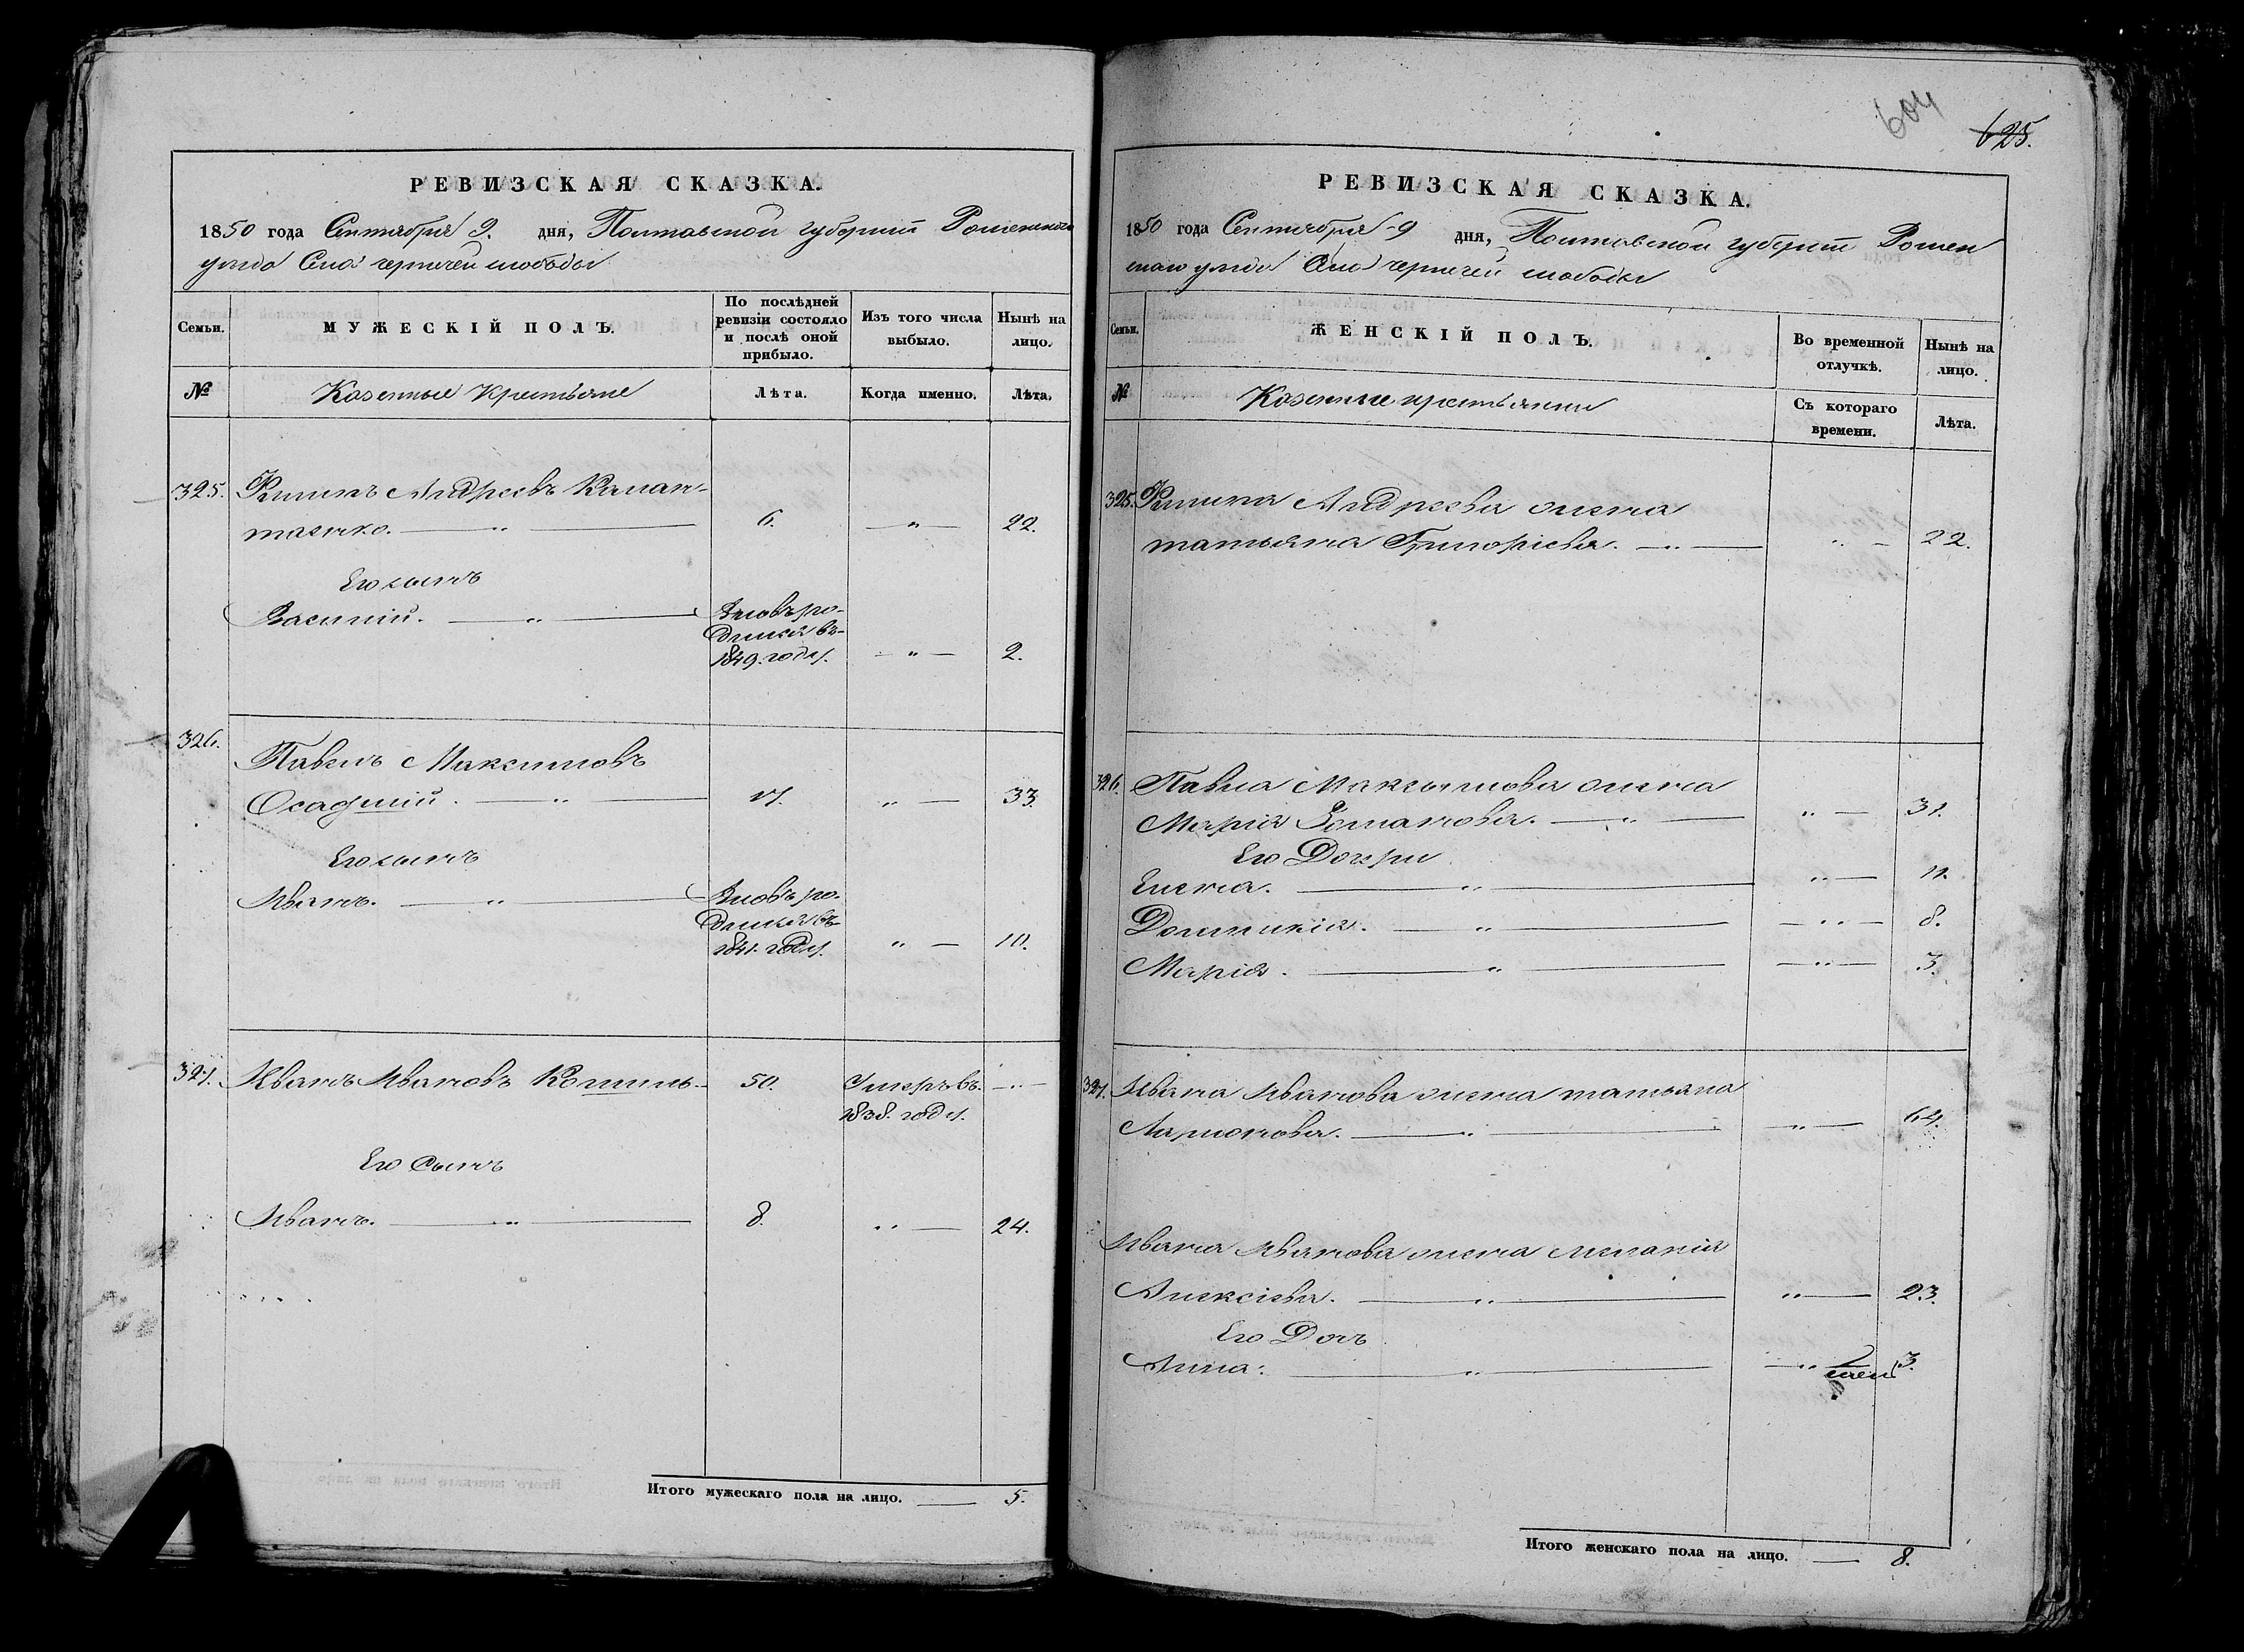 РЕВИЗСКАЯ СКАЗКА.
1850 года Сентября 9. дня, Полтавской губерніи Роменскаго
уѣзда Села чернечей слободы
Семьи.
МУЖЕСКІЙ ПОЛЪ.
По послѣдней ревизіи состояло и послѣ оной прибыло.
Изъ того числа выбыло.
Нынѣ на лицо.
№
Казенные Крестьяне
Лѣта.
Когда именно.
Лѣта.
325. Филипъ Андреевъ Калан-
таенко. 6. 22.
Его сынъ
Василій. Вновь ро-
дился въ
1849. году. 2.
326. Павелъ Максимовъ
Осадчій. 17. 33.
Его сынъ
Иванъ. Вновь ро-
дился въ
1841. году. 10.
327. Иванъ Ивановъ 50. Умеръ въ
1838. году.
Его Сынъ
Иванъ. 8. 24.
Итого мужескаго пола на лицо. 5.
604
625.
РЕВИЗСКАЯ СКАЗКА.
1850 года Сентября 9 дня, Полтавской губерніи Ромен
скаго уѣзда Села чернечей слободы
Семьи.
ЖЕНСКІЙ ПОЛЪ.
Во временной отлучкѣ.
Нынѣ на лицо.
№
Казенные крестьянки
Съ котораго времени.
Лѣта.
325. Филипа Андреева жена
татьяна Григоріева. 22.
326. Павла Максимова жена
Марія Романова. 31.
Его Дочери
Елена. 12.
Домникія. 8.
Марія. 3.
327. Ивана Иванова жена татьяна
Ларионова. 64.
Ивана Иванова жена меланія
Алексіева. 23.
Его Дочь
Анна. 3.
Итого женскаго пола на лицо. 8.